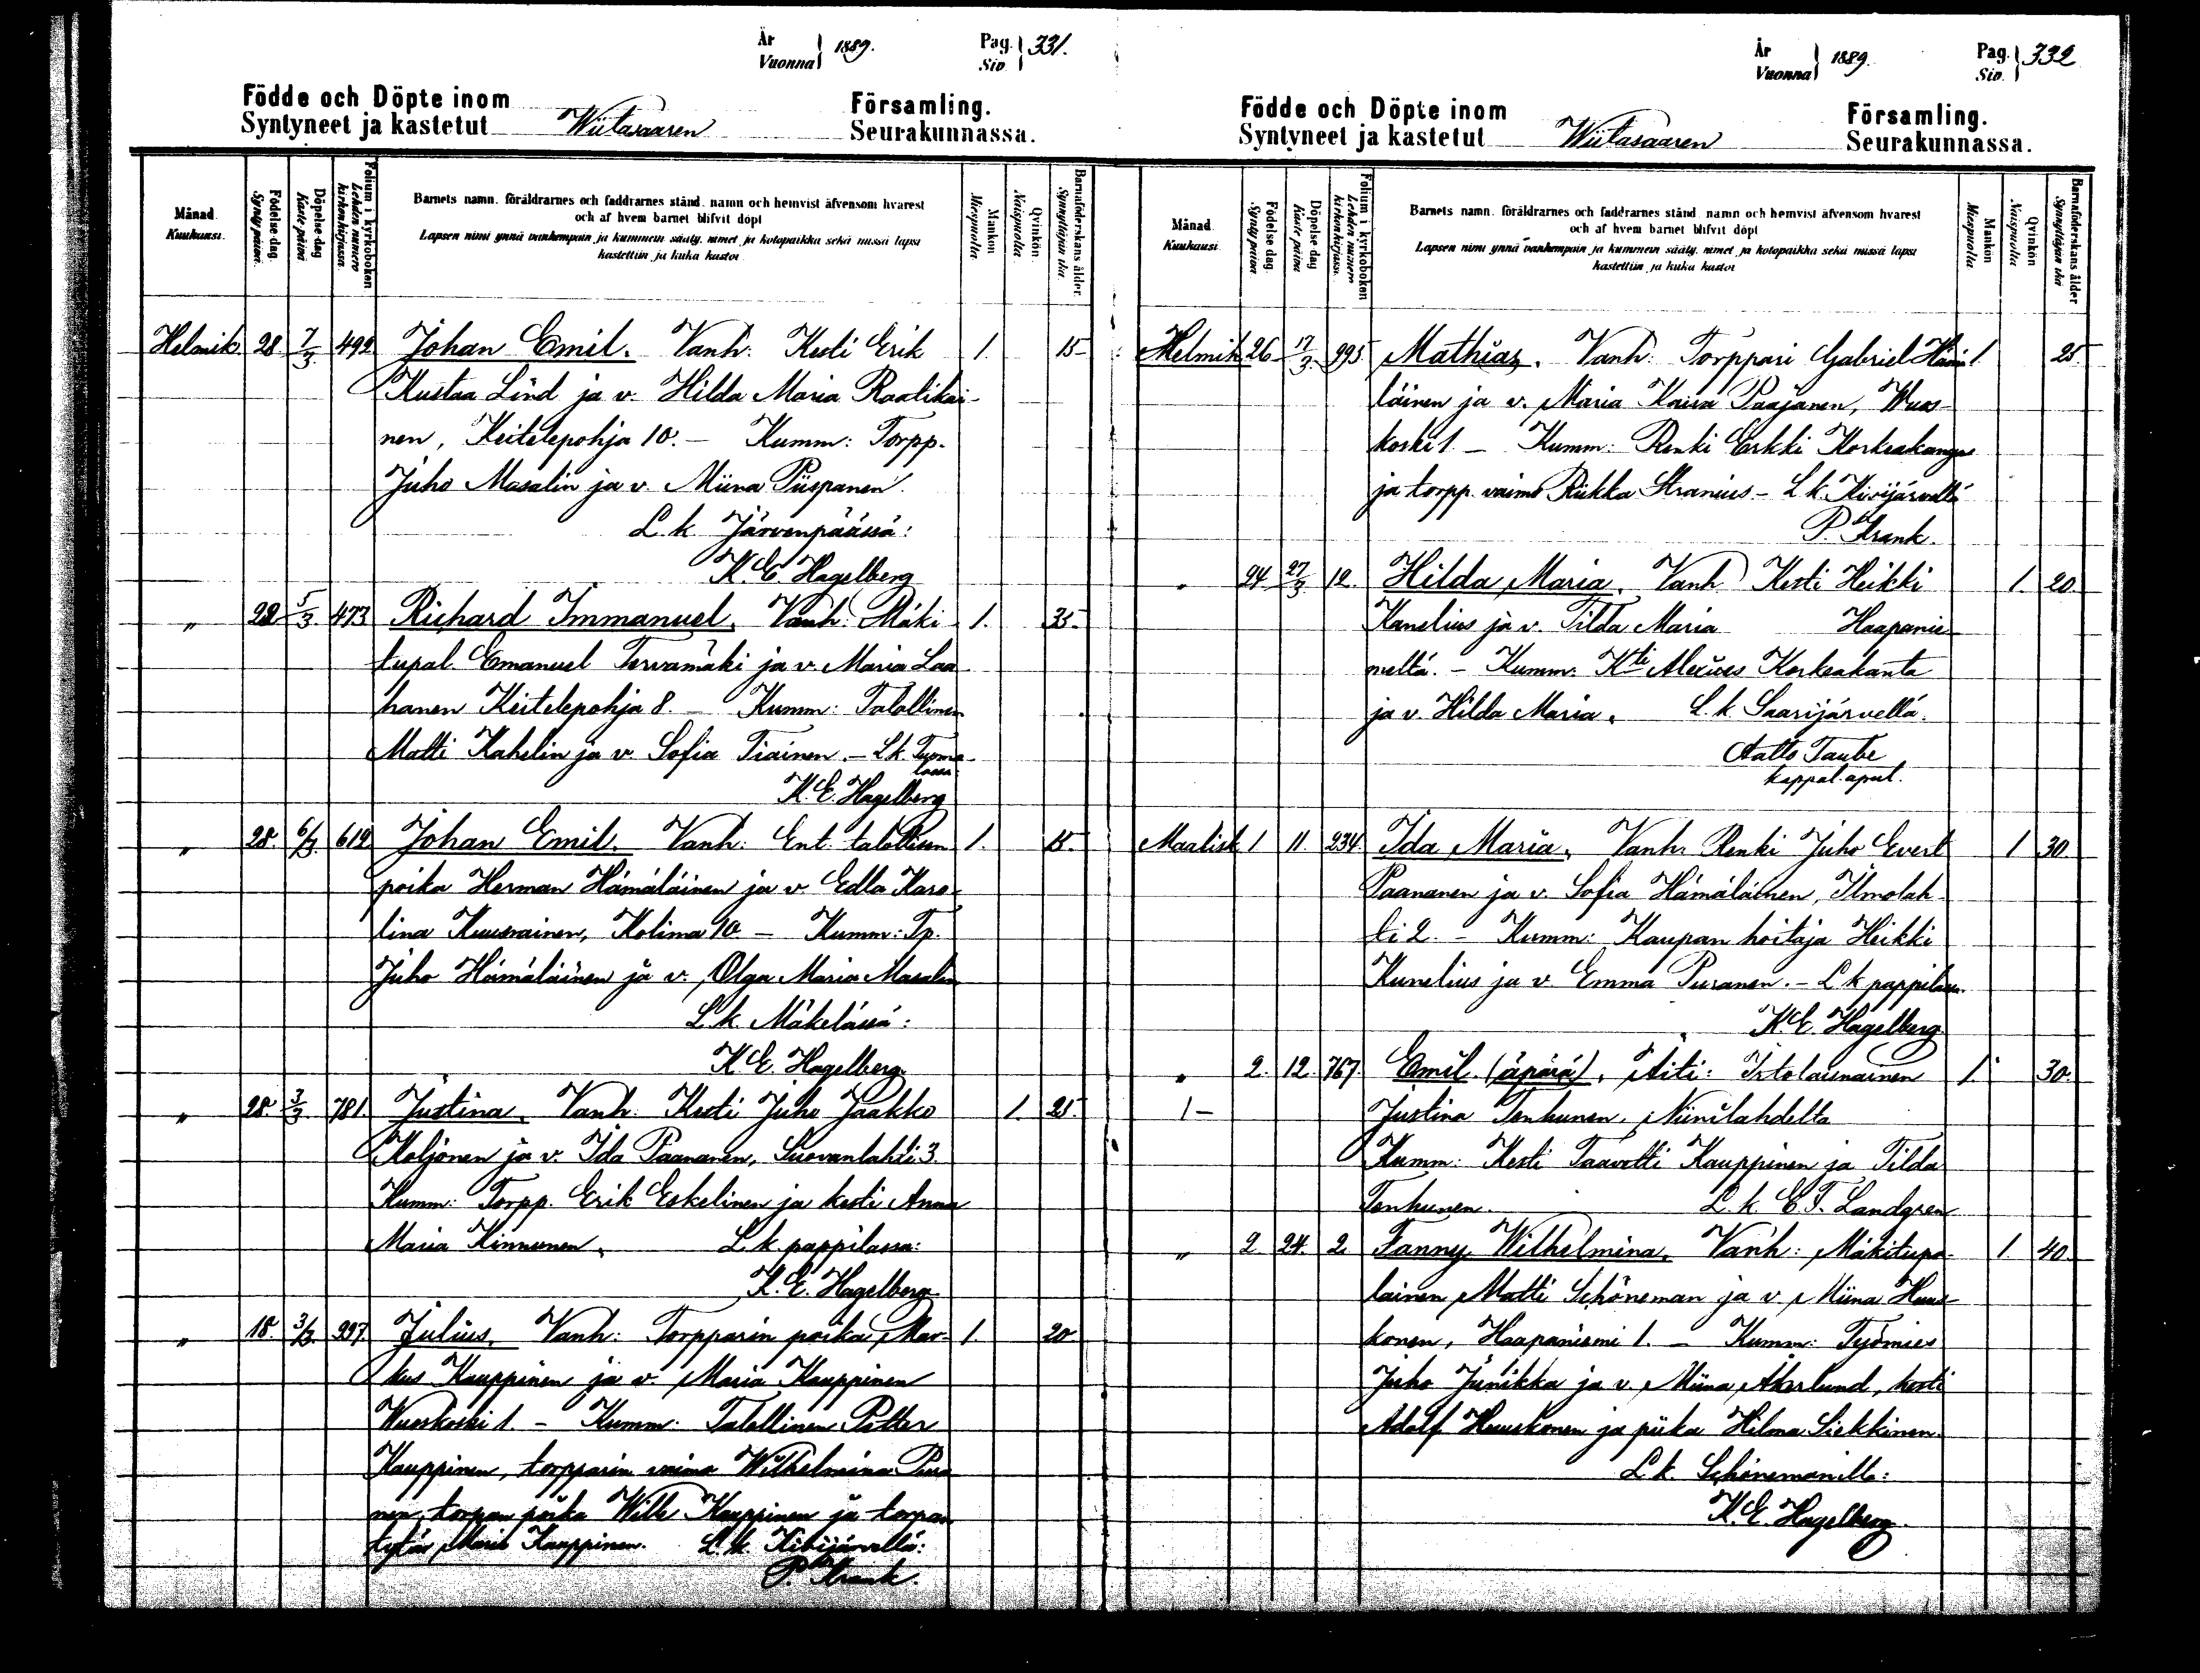 År
Vuonna } 1889.
Pag.
Siv. } 331.
Födde och Döpte inom
Syntyneet ja kastetut Wiitasaaren
Församling.
Seurakunnassa.
Månad.
Kuukausi.
Födelse dag.
Synty päivä.
Döpelse-dag
Kaste päivä
Folium i kyrkoboken
Lehden numero kirkonkirjassa.
Barnets namn, föräldrarnes och faddrarnes stånd, namn och hemvist äfvensom hvarest
och af hvem barnet blifvit döpt
Lapsen nimi ynnä vanhempain ja kummein sääty, nimet ja kotopaikka sekä missä lapsi
kastettiin ja kuka kastoi
Mankön
Miespuolia
Qvinkön
Naispuolia
Barnaföderskans ålder.
Synnyttäjän ikä
Helmik. 28 7/3. 492 Johan Emil. Vanh: Kesti Erik 1. 15
Kustaa Lind ja v. Hilda Maria Raatikai-
nen, Keitelepohja 10. – Kumm: Torpp.
Juho Masalin ja v. Miina Piispanen.
L. k. Järvenpäässä:
K. E. Hagelberg
" 22 5/3 473 Richard Immanuel. Vanh: Mäki- 1. 35
tupal. Emanuel Tervamäki ja v. Maria Laa-
hanen Keitelepohja 8. – Kumm: Talollinen
Matti Kahelin ja v. Sofia Tiainen. – L. k. Tuoma-
lassa:
K. E. Hagelberg
" 28. 6/3. 619 Johan Emil. Vanh: Ent. talollisen 1. 15.
poika Herman Hämäläinen ja v. Edla Karo-
lina Kuusrainen, Kolima 10 – Kumm: Tp.
Juho Hämäläinen ja v. Olga Maria Masalin
L. k. Mäkelässä:
K. E. Hagelberg.
" 28. 3/3. 781. Justina. Vanh. Kesti Juho Jaakko 1. 25.
Koljonen ja v. Ida Paananen, Suovanlahti 3.
Kumm: Torpp. Erik Eskelinen ja kesti Anna
Maria Kinnunen. L. k. pappilassa:
K. E. Hagelberg
" 18. 3/3. 997. Julius. Vanh: Torpparin poika Mar- 1. 20
kus Kauppinen ja v. Maria Kauppinen
Wuoskoski 1. – Kumm. Talollinen Petter
Kauppinen, torpparin vaimo Wilhelmina Pura-
nen, torpan poika Wille Kauppinen ja torpan
tytär Maria Kauppinen. L. k. Kivijärvellä:
P. Krank.
År
Vuonna } 1889.
Pag.
Siv. } 332
Födde och Döpte inom
Syntyneet ja kastetut Wiitasaaren
Församling.
Seurakunnassa.
Månad
Kuukausi
Födelse dag.
Synty päivä.
Döpelse dag
Kaste päivä
Folium i kyrkoboken
Lehden numero kirkonkirjassa.
Barnets namn, föräldrarnes och faddrarnes stånd, namn och hemvist äfvensom hvarest
och af hvem barnet blifvit döpt
Lapsen nimi ynnä vanhempain ja kummein sääty, nimet ja kotopaikka sekä missä lapsi
kastettiin ja kuka kastoi
Mankön
Miespuolia
Qvinkön
Naispuolia
Barnaföderskans ålder
Synnyttäjän ikä
Helmik 26 17/3. 995 Mathias. Vanh: Torppari Gabriel Hämä- 1. 25.
läinen ja v. Maria Kaisa Paajanen, Wuos-
koski 1. – Kumm: Renki Erkki Korkeakangas
ja torpp. vaimo Riikka Stranius – L. k. Kivijärvellä
P. Krank.
" 24 27/3 12. Hilda Maria. Vanh Kesti Heikki 1. 20.
Kanelius ja v. Tilda Maria Haapanie-
meltä. – Kumm: Kti Alexius Korkeakanta
ja v. Hilda Maria. L. k. Saarijärvellä.
Aatto Taube
kappal. apul.
Maalisk 1 11. 234. Ida Maria. Vanh. Renki Juho Evert 1 30.
Paananen ja v. Sofia Hämäläinen, Ilmolah-
ti 2. – Kumm: Kaupan hoitaja Heikki
Kunelius ja v. Emma Puranen. – L. k. pappilassa.
K. E. Hagelberg.
" 2. 12. 767. Emil. (äpärä). Äiti: Irtolaisnainen 1. 30.
1 – Justina Tenhunen, Niinilahdelta
Kumm: Kesti Taavetti Kauppinen ja Tilda
Tenhunen. L. k. E. F. Landgren
" 2 24. 2 Fanny Wilhelmina. Vanh: Mäkitupa- 1. 40.
lainen Matti Schöneman ja v. Miina Huus-
konen, Haapaniemi 1. – Kumm: Työmies
Juho Junikka ja v. Miina Åkerlund, kesti
Adolf Huuskonen ja piika Hilma Siekkinen.
L. k. Schönemanilla:
K. E. Hagelberg.